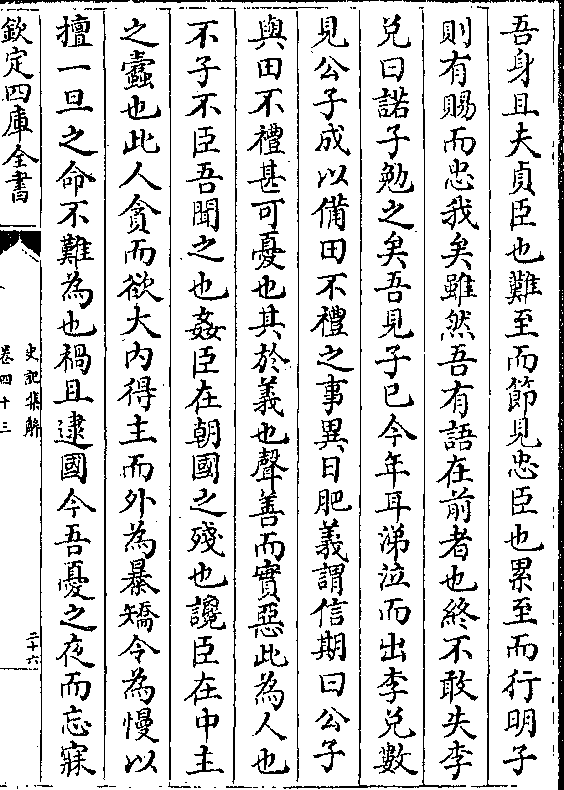 吾身且夫貞臣也難至而節見忠臣也累至而行明子
則有賜而忠我矣雖然吾有語在前者也終不敢失李
兌曰諾子勉之矣吾見子已今年耳涕泣而出李兌數
見公子成以備田不禮之事異日肥義謂信期曰公子
與田不禮甚可憂也其於義也聲善而實惡此為人也
不子不臣吾聞之也姦臣在朝國之殘也讒臣在中主
之蠹也此人貪而欲大內得主而外為暴矯令為慢以
擅一旦之命不難為也禍且逮國今吾憂之夜而忘寐
欽定四庫全書
史記集解
卷四十三
三十六